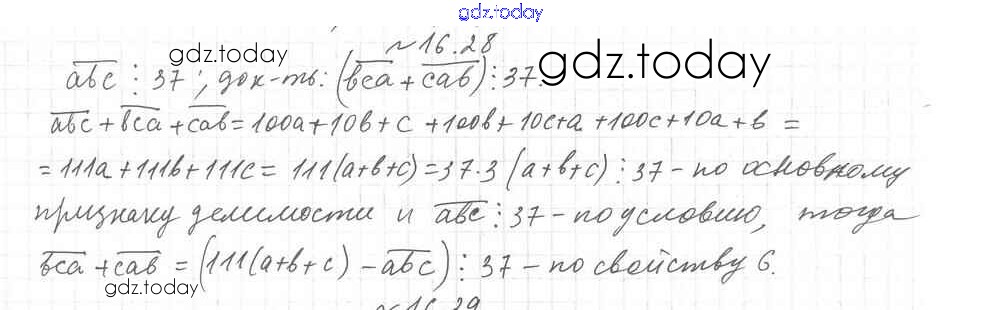 gdz.today
№16.28
gdz.today gdz.today
a̅b̅c̅ ⋮ 37; док-ть: (b̅c̅a̅ + c̅a̅b̅) ⋮ 37.
a̅b̅c̅ + b̅c̅a̅ + c̅a̅b̅ = 100a + 10b + c + 100b + 10c + a + 100c + 10a + b =
= 111a + 111b + 111c = 111(a+b+c) = 37·3 (a+b+c) ⋮ 37 – по основному
признаку делимости и a̅b̅c̅ ⋮ 37 – по условию, тогда
b̅c̅a̅ + c̅a̅b̅ = (111(a+b+c) – a̅b̅c̅) ⋮ 37 – по свойству 6.
gdz.today
№16.29